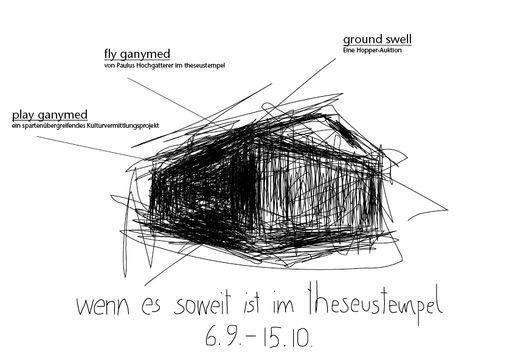 ground swell
Eine Hopper-Auktion
fly ganymed
von Paulus Hochgatterer im theseustempel
play ganymed
ein spartenübergreifendes Kulturvermittlungsprojekt
wenn es soweit ist im theseustempel
6.9.-15.10.